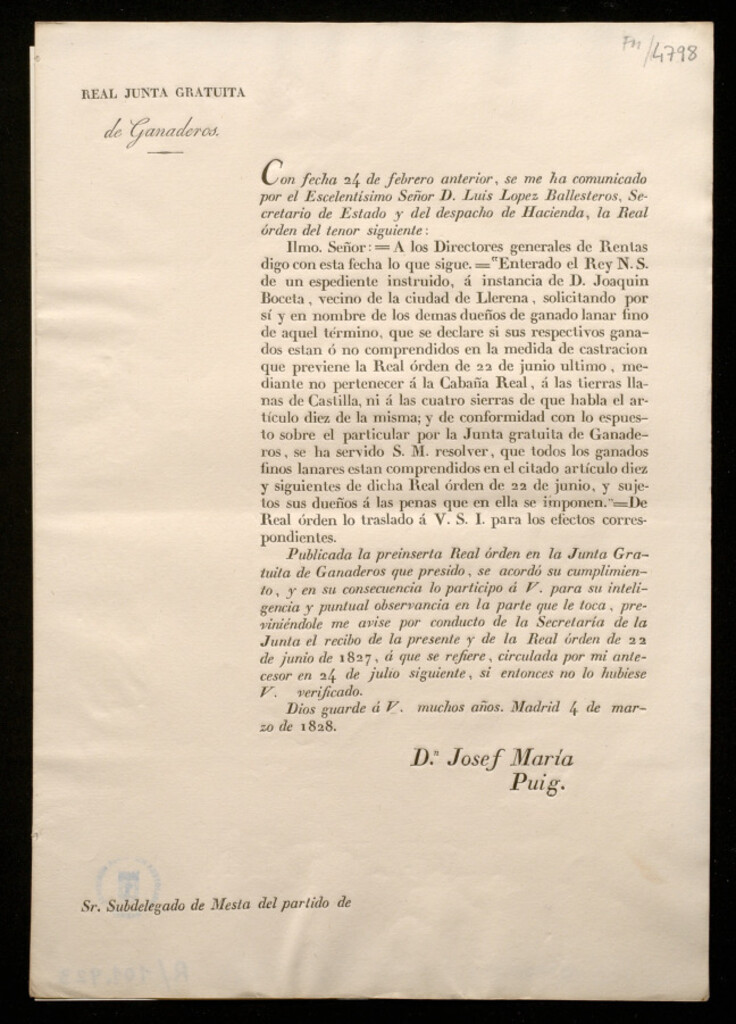 Fm/4798
REAL JUNTA GRATUITA
de Ganaderos.
Con fecha 24 de febrero anterior, se me ha comunicado
por el Escelentísimo Señor D. Luis Lopez Ballesteros, Se-
cretario de Estado y del despacho de Hacienda, la Real
órden del tenor siguiente:
Ilmo. Señor:=A los Directores generales de Rentas
digo con esta fecha lo que sigue.="Enterado el Rey N. S.
de un espediente instruido, á instancia de D. Joaquin
Boceta, vecino de la ciudad de Llerena, solicitando por
sí y en nombre de los demas dueños de ganado lanar fino
de aquel término, que se declare si sus respectivos gana-
dos estan ó no comprendidos en la medida de castracion
que previene la Real órden de 22 de junio ultimo, me-
diante no pertenecer á la Cabaña Real, á las tierras lla-
nas de Castilla, ni á las cuatro sierras de que habla el ar-
tículo diez de la misma; y de conformidad con lo espues-
to sobre el particular por la Junta gratuita de Ganade-
ros, se ha servido S. M. resolver, que todos los ganados
finos lanares estan comprendidos en el citado artículo diez
y siguientes de dicha Real órden de 22 de junio, y suje-
tos sus dueños á las penas que en ella se imponen."=De
Real órden lo traslado á V. S. I. para los efectos corres-
pondientes.
Publicada la preinserta Real órden en la Junta Gra-
tuita de Ganaderos que presido, se acordó su cumplimien-
to, y en su consecuencia lo participo á V. para su inteli-
gencia y puntual observancia en la parte que le toca, pre-
viniéndole me avise por conducto de la Secretaría de la
Junta el recibo de la presente y de la Real órden de 22
de junio de 1827, á que se refiere, circulada por mi ante-
cesor en 24 de julio siguiente, si entonces no lo hubiese
V. verificado.
Dios guarde á V. muchos años. Madrid 4 de mar-
zo de 1828.
D.ⁿ Josef María
Puig.
Sr. Subdelegado de Mesta del partido de